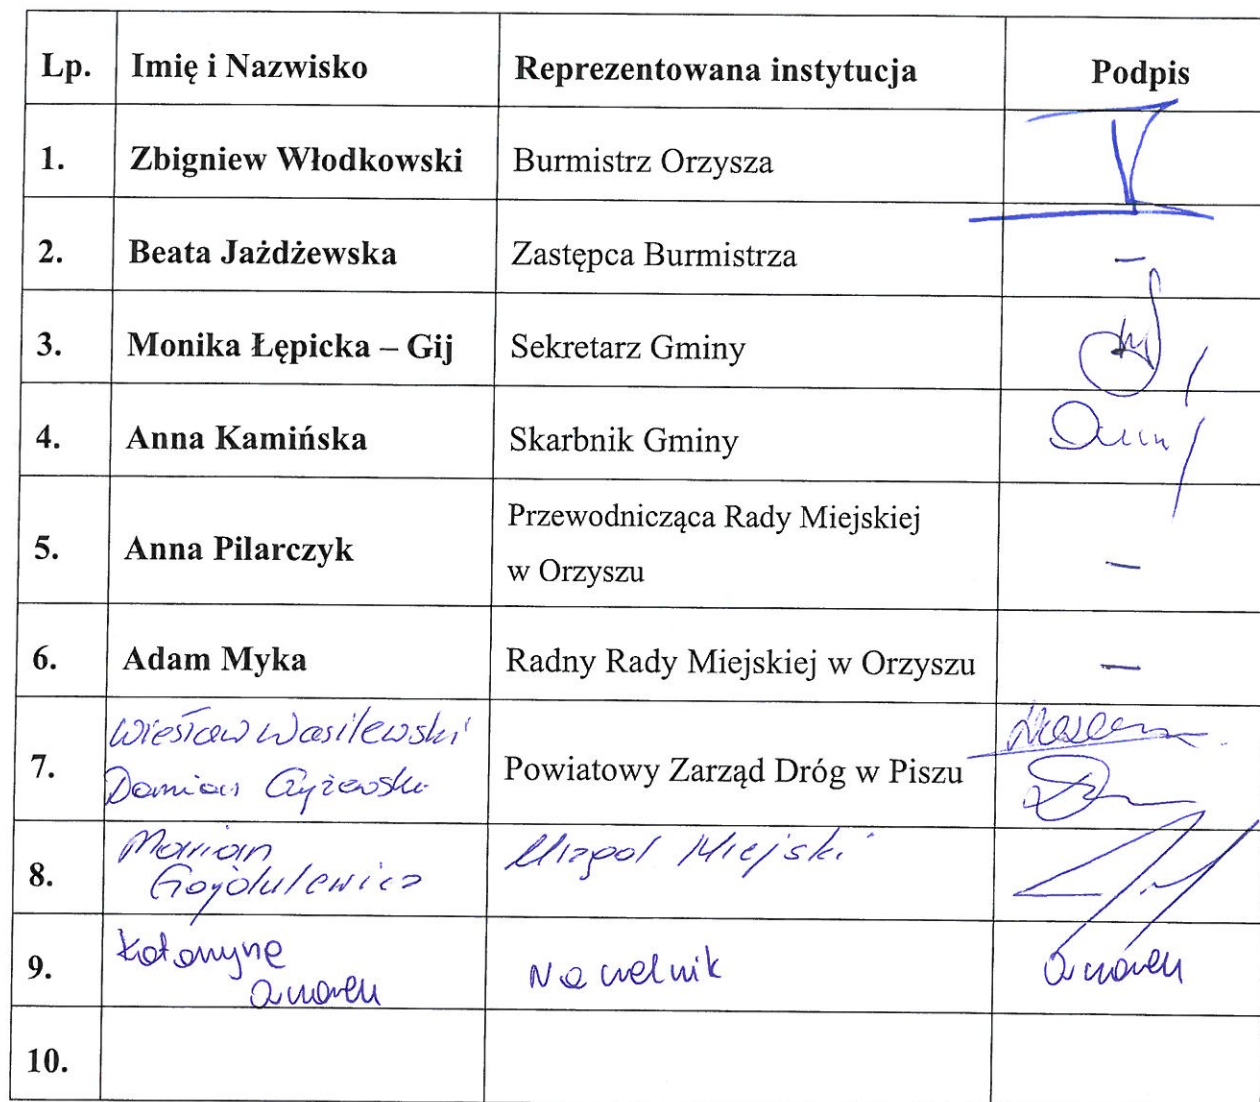 Lp. Imię i Nazwisko Reprezentowana instytucja Podpis
1. Zbigniew Włodkowski Burmistrz Orzysza
2. Beata Jażdżewska Zastępca Burmistrza –
3. Monika Łępicka – Gij Sekretarz Gminy
4. Anna Kamińska Skarbnik Gminy
5. Anna Pilarczyk Przewodnicząca Rady Miejskiej
w Orzyszu –
6. Adam Myka Radny Rady Miejskiej w Orzyszu –
Wiesław Wasilewski
7. Powiatowy Zarząd Dróg w Piszu
Damian Czyżewski
Marian Urząd Miejski
8. Gojdulewicz
Katarzyna
9. Naczelnik
10.